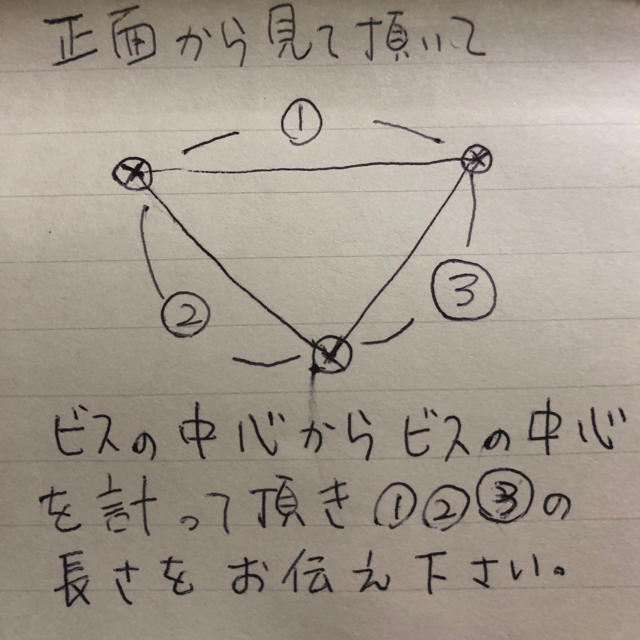 正面から見て頂いて
①
②
③
ビスの中心からビスの中心
を計って頂き①②③の
長さをお伝え下さい。